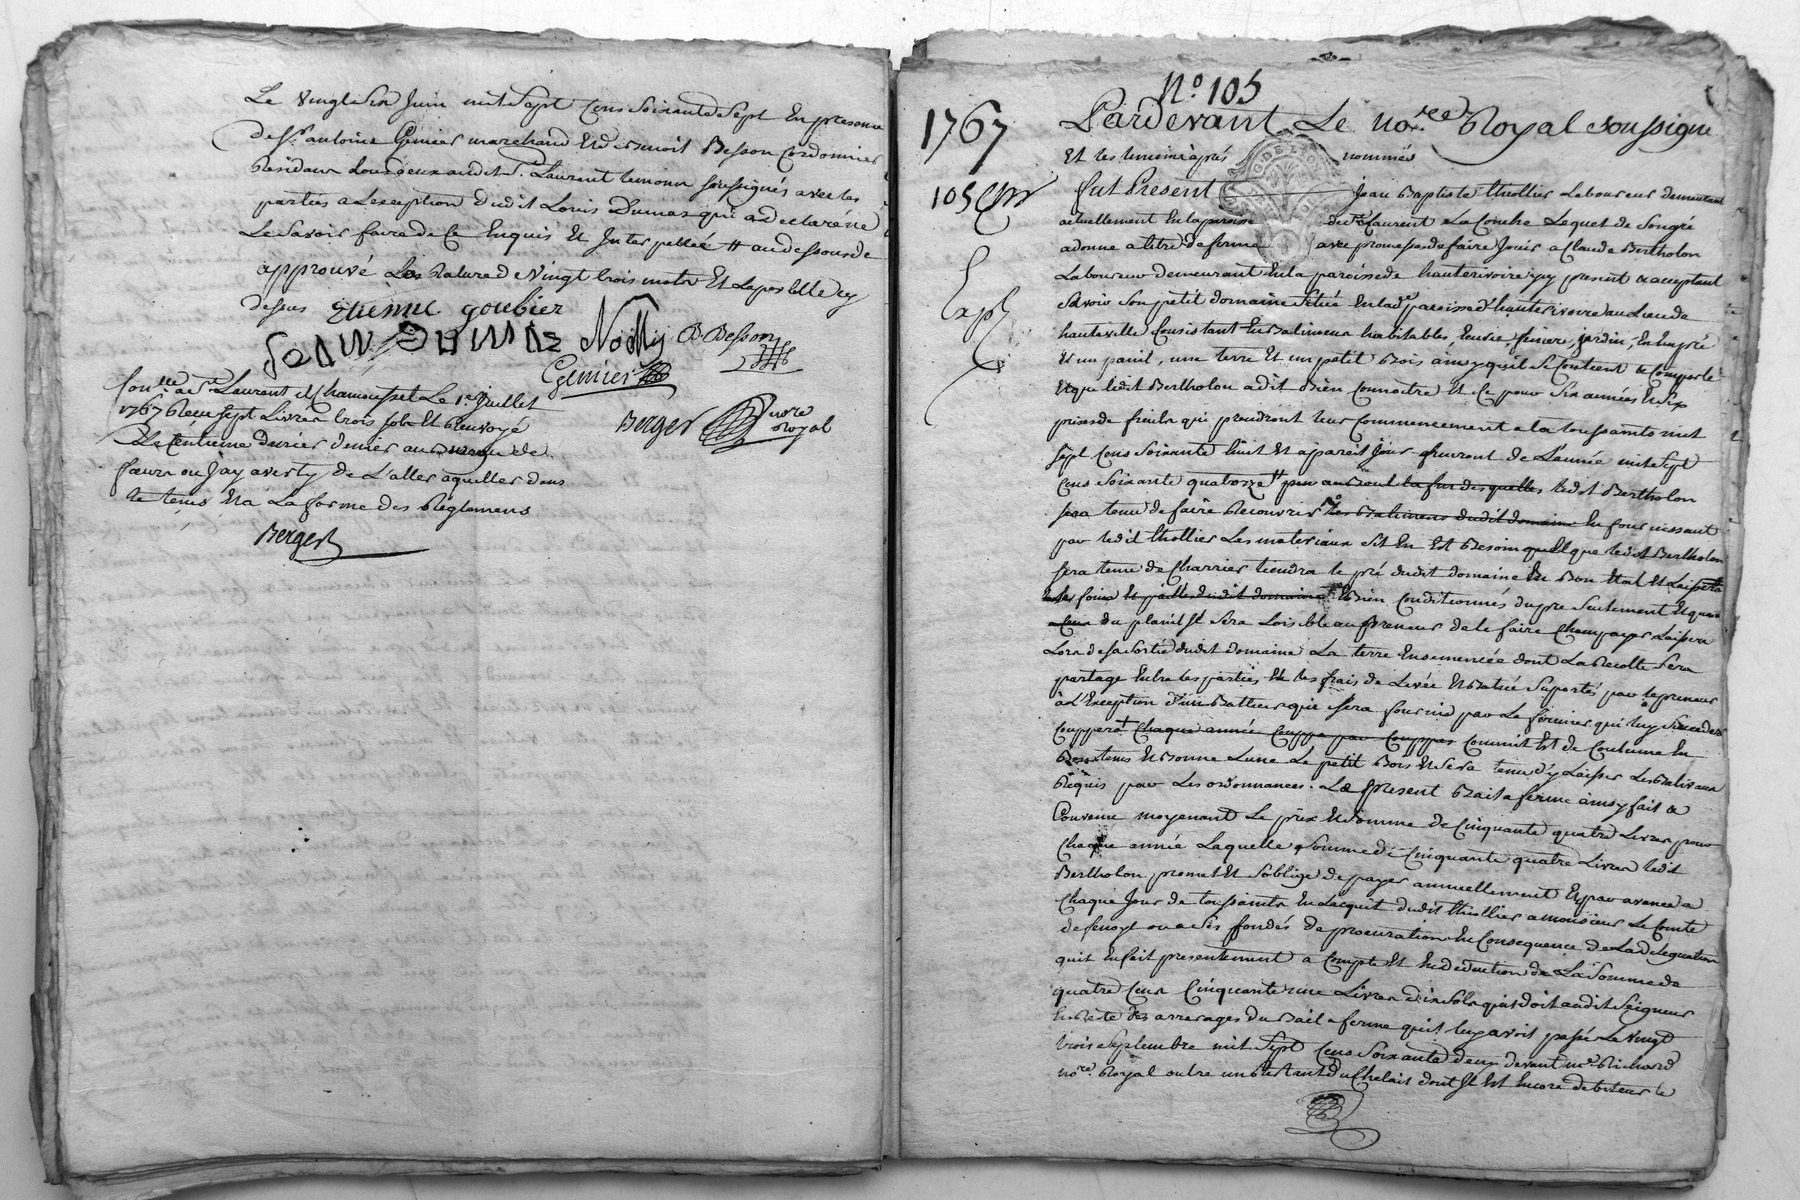 Le vingt six Juin mil sept cens soixante sept En presence
de Sr. antoine Genier marchand Et de Benoit Besson Cordonnier
Residans tous deux audit St. Laurent temoins soussignés avec les
parties a L'exception dudit Louis Dumas qui a declaré ne
Le savoir faire de ce Enquis Et Interpellé # au dessous de
approuvé La Rature de vingt trois mots Et L'apostille cy
dessus Etienne goubier
Jean Dumas Noilly B Besson
Genier
Conllé a St. Laurent de Chamousset Le 1er Juillet
1767 Reçu sept Livres trois sols Et Renvoyé
Le Centieme denier au Bureau de
ou J'ay averty de L'aller aquitter dans
le tems Et a La forme des Reglemens
Berger nore
Royal
Berger
No. 105
1767
Pardevant Le nore. Royal soussigné
105
Et les temoins aprés nommés
fut Present Jean Baptiste thollier Laboureur demeurant
actuellement En la paroisse de St. Laurent
a donné a titre de ferme avec promesse de faire Jouir a Claude Bertholon
Laboureur demeurant En la paroisse de hauterivoire icy present & acceptant
Savoir Son petit domaine Situé En lade. paroisse d'hauterivoire au Lieu de
hauteville Consistant En Batimens habitables, Ecurie, feniere, jardin, En un pré
Et un une terre Et un petit Bois, ainsy qu'il Se Contient & Comporte
Et que ledit Bertholon a dit Bien Connoitre Et Ce pour Six années Et Six
prises de fruits qui prendront leur Commencement a la toussaints mil
Sept Cens Soixante huit Et a pareil Jour finiront de L'année mil Sept
Cens Soixante quatorze # ledit Bertholon
Sera tenu de faire Recouvrir les Batimens dudit domaine En fournissant
par ledit thollier Les materiaux S'il En Est Besoin que ledit Bertholon
Sera tenu de Charrier tiendra le pré dudit domaine En Bon Etat Et Laissera
les foins Et pailles dudit domaine Bien Conditionnés du pré Seulement Et
du Sera Loisible au Preneur de le faire Champayer Laissera
Lors de Sa Sortie dudit domaine La terre Ensemencée dont La Recolte Sera
partagé Entre les parties Et les frais de Levée Et Battue Suportés par le preneur
à L'Exception d'un Batteur qui Sera fourni par Le fermier qui luy Succedera
Couppera + Chaque année Couppe par Couppes Comme il Est de Coutume En
Bon tems Et Bonne Lune Le petit Bois Et Sera tenu d'y Laisser Les Baliveaux
Requis par Les ordonnances. Le present Bail a ferme ainsy fait &
Convenu moyenant Le prix Et Somme de Cinquante quatre Livres pour
Chaque année Laquelle Somme de Cinquante quatre Livres ledit
Bertholon promet Et S'oblige de payer annuellement Et par avance a
Chaque Jour de toussaints En L'acquit dudit thollier a monsieur Le Comte
de fenoyl ou a Ses fondés de procuration En Consequence de La delegation
qu'il En fait presentement a Compte Et En deduction de La Somme de
quatre Cens Cinquante une Livres dix Sols qu'il doit audit Seigneur
En Reste des arrerages du Bail a ferme qu'il luy avoit passé Le vingt
trois Septembre mil Sept Cens Soixante deux devant me. Richard
nore. Royal outre un Restant du Chetail dont Il Est Encore debiteur le